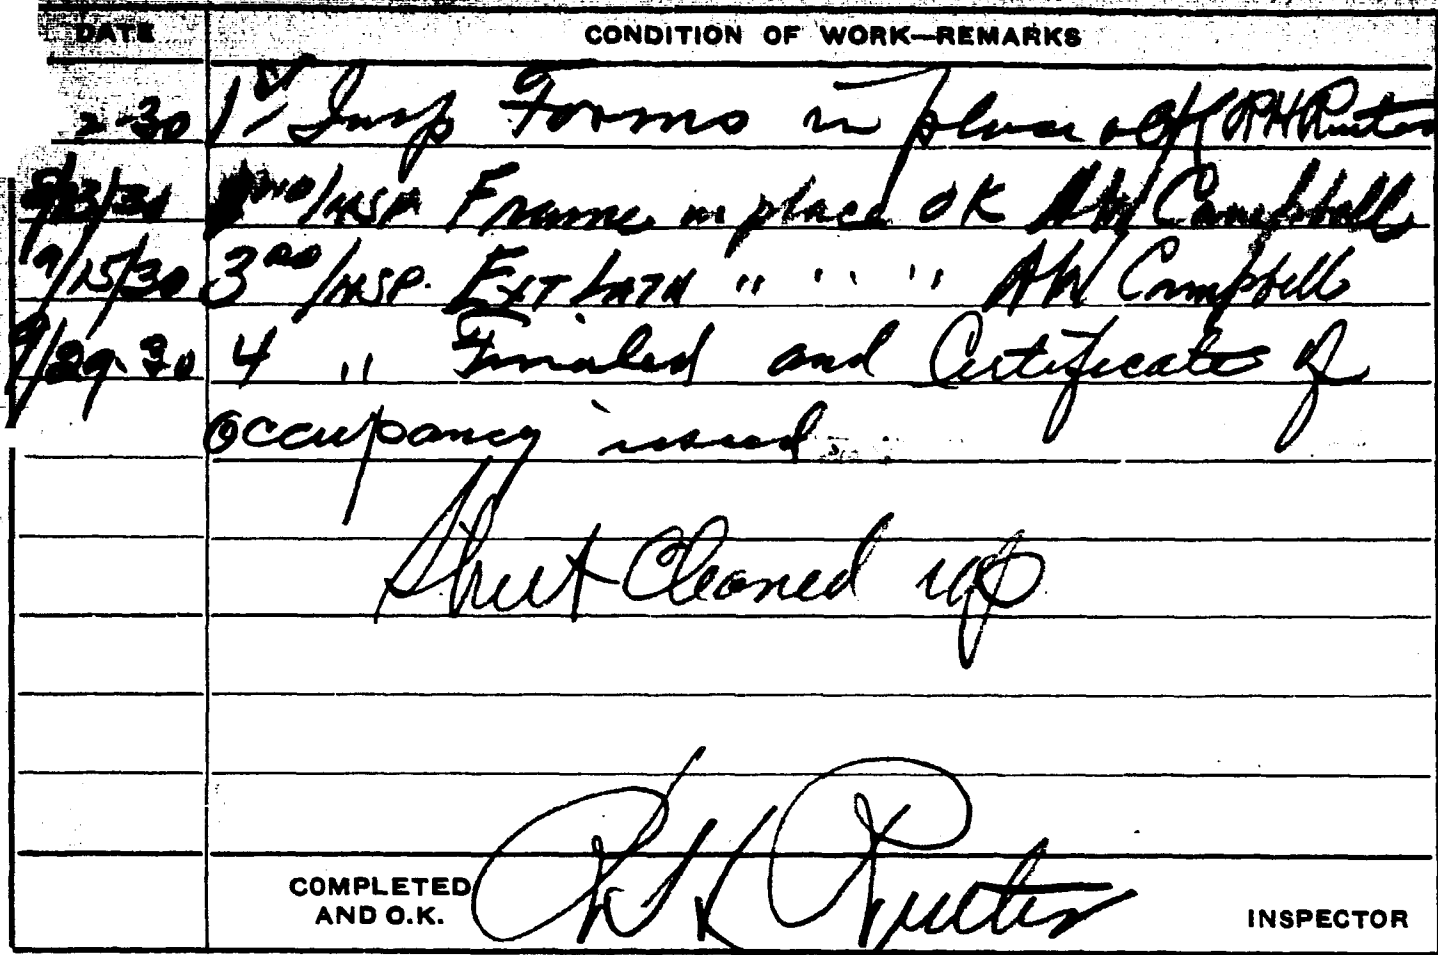 DATE CONDITION OF WORK—REMARKS
2-30 1st Insp Forms in place OK RH Ruiter
8/13/30 2ND INSP. Frame in place OK AW Campbell
9/15/30 3RD INSP. EXT LATH " " " AW Campbell
9/29-30 4 " Finaled and Certificate of
Occupancy issued
Street Cleaned up
COMPLETED
AND O.K.
INSPECTOR